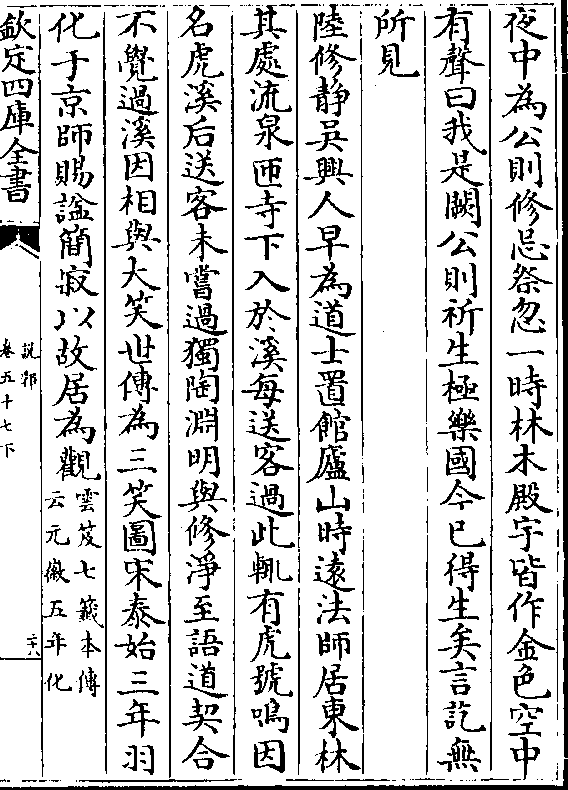 夜中為公則修忌祭忽一時林木殿宇皆作金色空中
有聲曰我是闕公則祈生極樂國今已得生矣言訖無
所見
陸修静吳興人早為道士置館廬山時遠法師居東林
其處流泉匝寺下入於溪每送客過此輒有虎號鳴因
名虎溪后送客未嘗過獨陶淵明與修淨至語道契合
不覺過溪因相與大笑世傳為三笑圖宋泰始三年羽
化于京師賜謚簡寂以故居為觀
雲笈七籤本傳
云元徽五年化
欽定四庫全書
說郛
卷五十七下
二十八